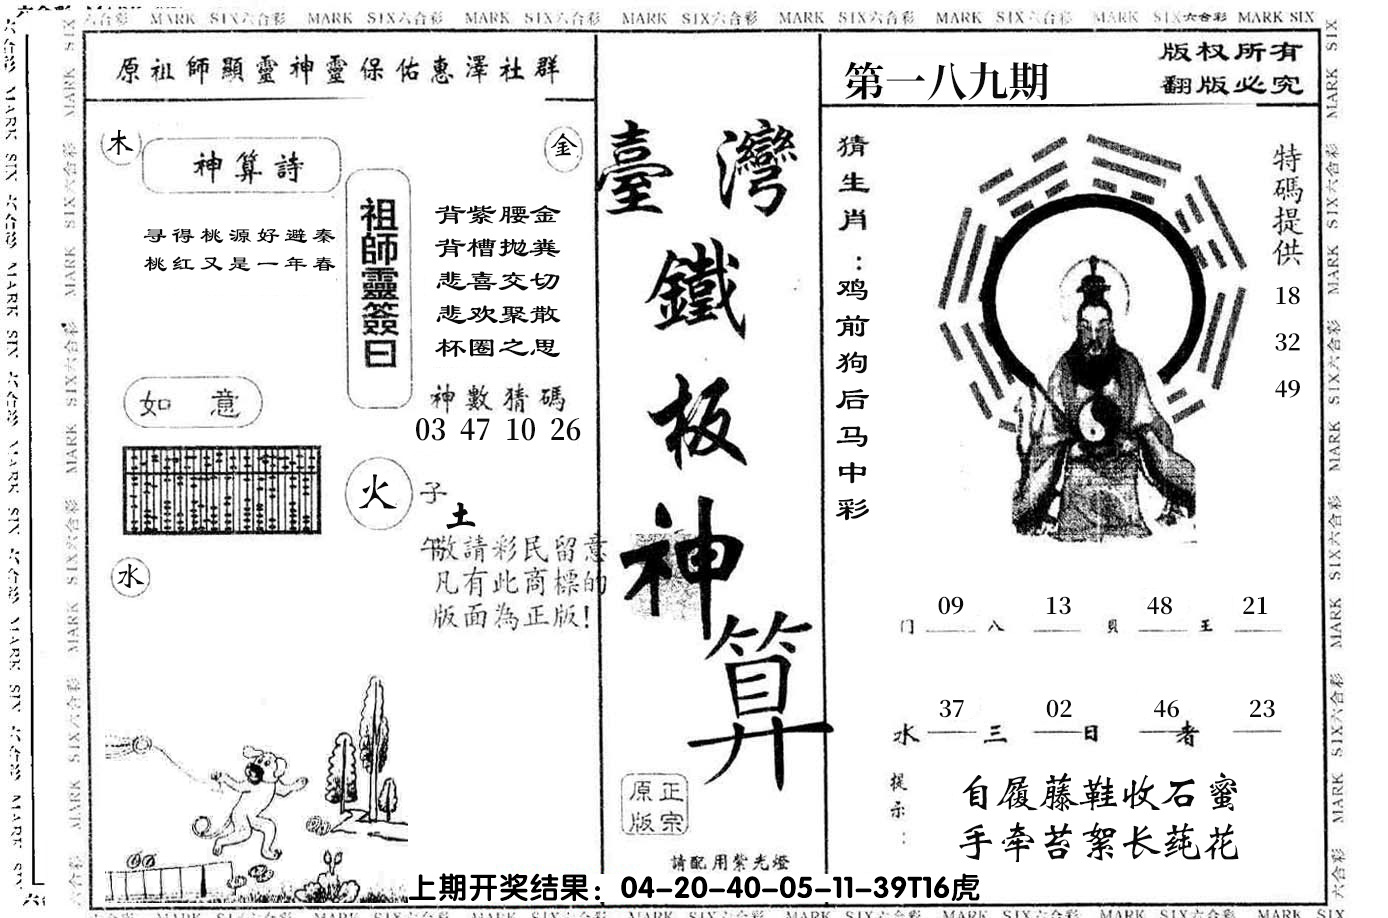 MARK SIX六合彩 MARK SIX六合彩 MARK SIX六合彩 MARK SIX六合彩 MARK SIX六合彩 MARK SIX六合彩 MARK SIX六合彩 MARK SIX
原祖師顯靈神靈保佑惠澤社群
木
神算詩
金
尋得桃源好避秦
桃红又是一年春
祖師靈簽曰
背紫腰金
背槽抛粪
悲喜交切
悲欢聚散
杯圈之思
神數猜碼
03 47 10 26
如意
火
子
土
午
敬請彩民留意
凡有此商標的
版面為正版!
水
臺灣
鐵
板
神
算
原版正宗
請配用紫光燈
第一八九期
版权所有
翻版必究
猜生肖：鸡前狗后马中彩
特碼提供
18
32
49
09 13 48 21
门 八 貝 王
37 02 46 23
水 三 日 者
提示：
自履藤鞋收石蜜
手牵苔絮长莼花
上期开奖结果：04-20-40-05-11-39T16虎